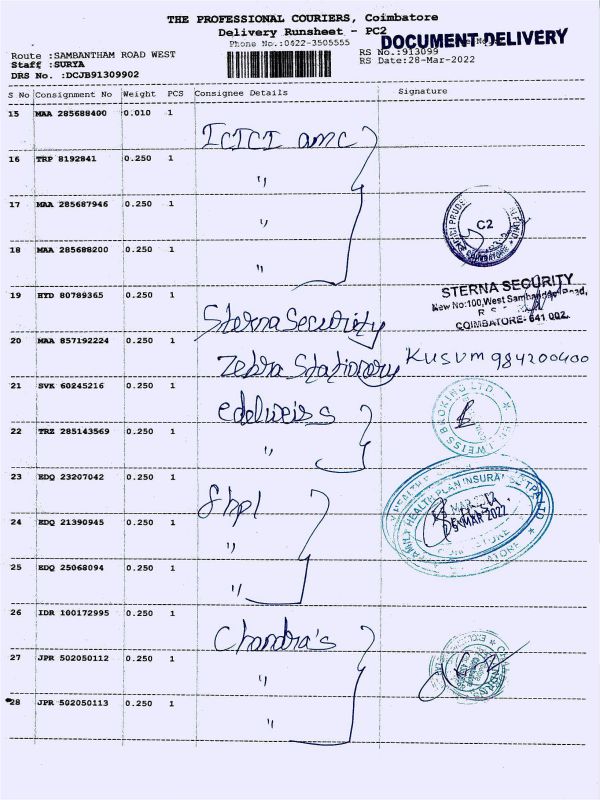 THE PROFESSIONAL COURIERS, Coimbatore
Delivery Runsheet - PC2
DOCUMENT-DELIVERY
Phone No.:0422-3505555
Route :SAMBANTHAM ROAD WEST
RS No.:913099
Staff :SURYA
RS Date:28-Mar-2022
DRS No. :DCJB91309902
S No Consignment No Weight PCS Consignee Details Signature
15 MAA 285688400 0.010 1 ICICI amc
16 TRP 8192841 0.250 1 "
17 MAA 285687946 0.250 1 "
C2
18 MAA 285688200 0.250 1 "
19 HYD 80789365 0.250 1 Sterna Security
STERNA SECURITY
New No:100,West Sambandam Road,
R S
COIMBATORE- 641 002.
20 MAA 857192224 0.250 1 Zebra Stationary KUSUM 984200400
21 SVK 60245216 0.250 1 edelweiss
EDELWEISS BROKING LTD
22 TRZ 285143569 0.250 1 "
23 EDQ 23207042 0.250 1 fhpl
FAMILY HEALTH PLAN INSURANCE TPA LTD
MAR 2022
24 EDQ 21390945 0.250 1 "
25 EDQ 25068094 0.250 1 "
26 IDR 100172995 0.250 1 Chandra's
27 JPR 502050112 0.250 1 "
28 JPR 502050113 0.250 1 "